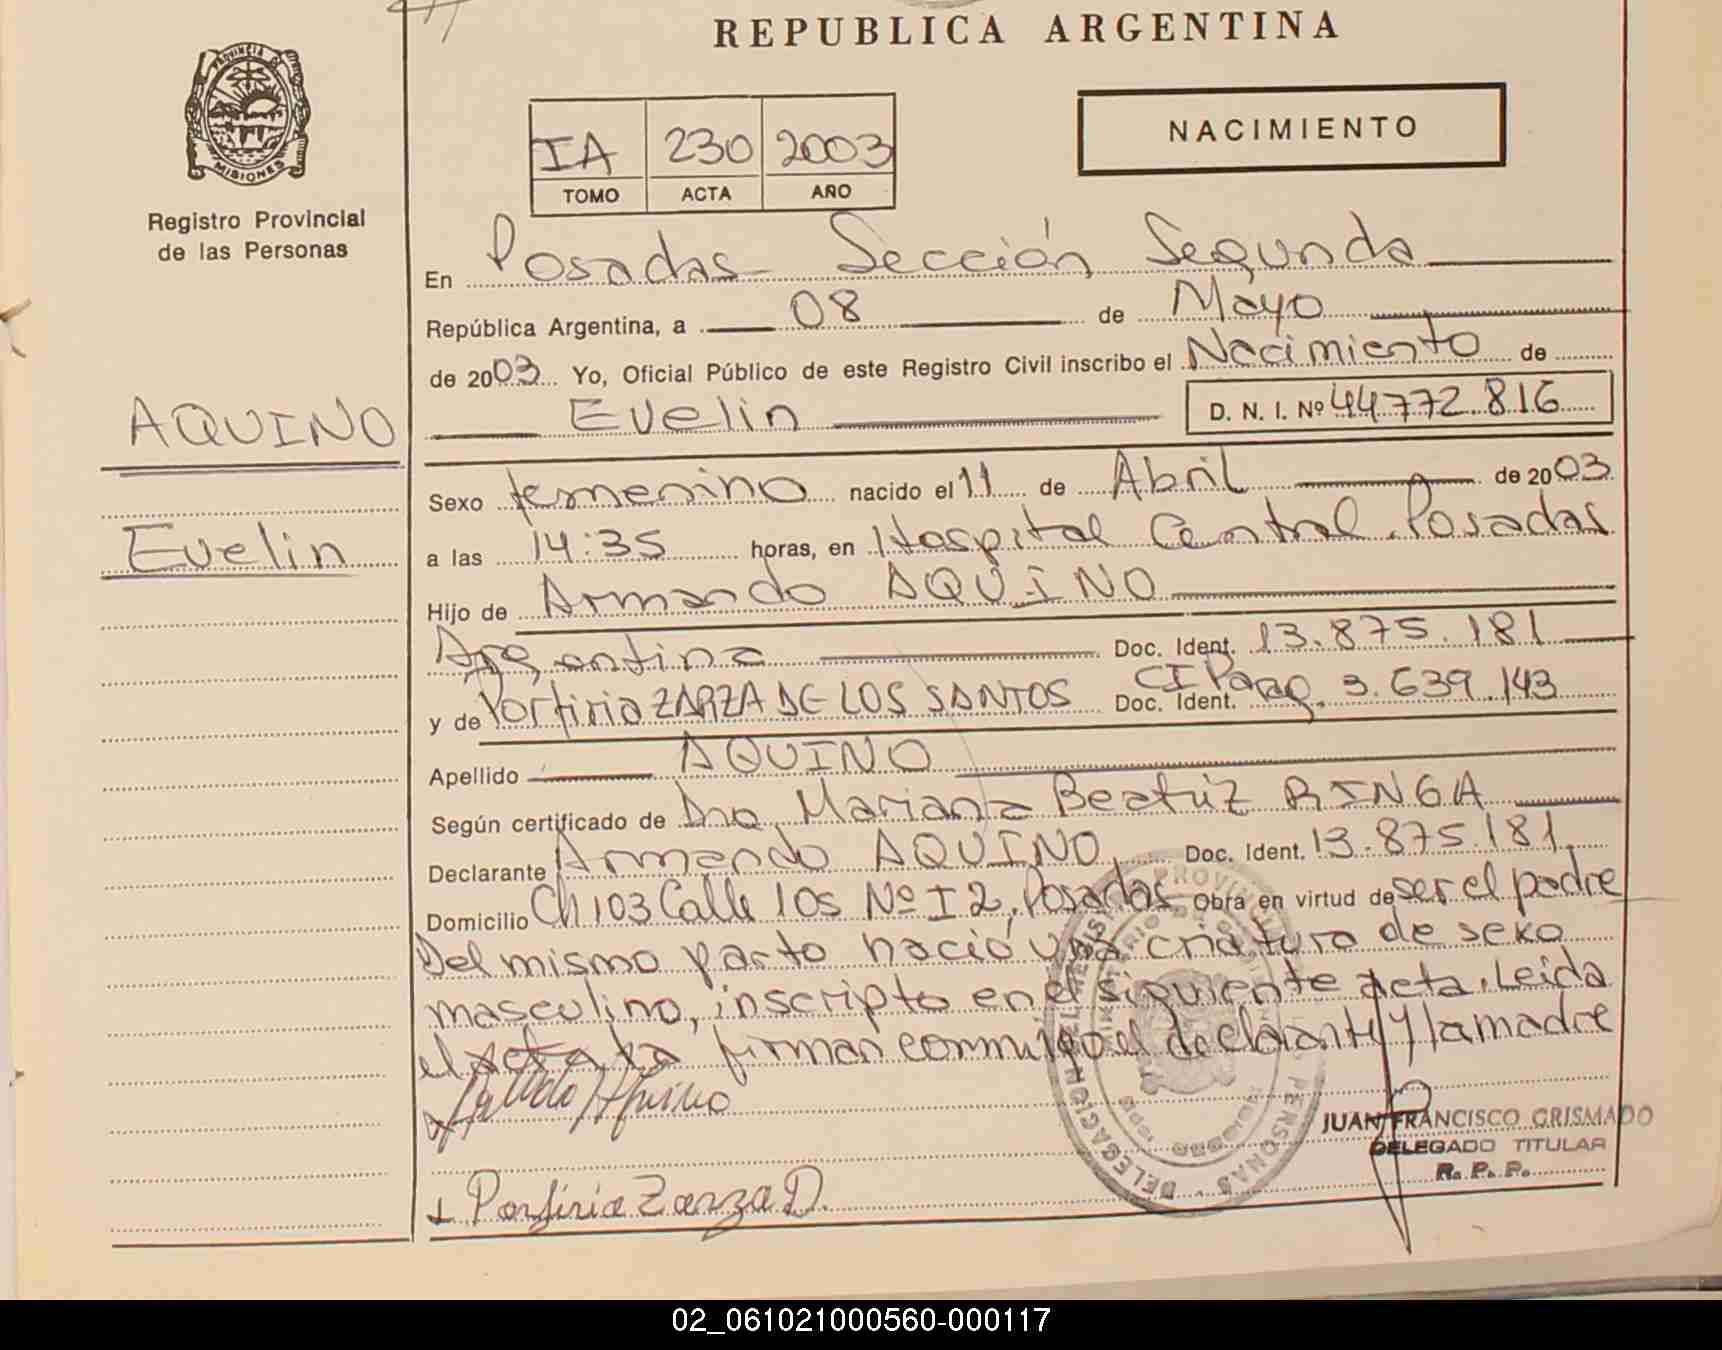 REPUBLICA ARGENTINA
PROVINCIA DE
MISIONES
Registro Provincial
de las Personas
IA 230 2003
TOMO ACTA AÑO
NACIMIENTO
En Posadas Sección Segunda
República Argentina, a 08 de Mayo
de 2003 Yo, Oficial Público de este Registro Civil inscribo el Nacimiento de
AQUINO
Evelin
Evelin D. N. I. Nº 44.772.816
Sexo femenino nacido el 11 de Abril de 2003
a las 14:35 horas, en Hospital Central. Posadas
Hijo de Armando AQUINO
Argentina Doc. Ident. 13.875.181
y de Porfiria ZARZA DE LOS SANTOS Doc. Ident. CI Parag. 3.639.143
Apellido AQUINO
Según certificado de Dra. Mariana Beatriz RINGA
Declarante Armando AQUINO, Doc. Ident. 13.875.181,
Domicilio Ch 103 Calle 105 Nº I2, Posadas Obra en virtud de ser el padre
Del mismo parto nació una criatura de sexo
masculino, inscripto en el siguiente acta. Leida
el acta la firman conmigo el declarante y la madre
Porfiria Zarza D.
JUAN FRANCISCO GRISMADO
DELEGADO TITULAR
R. P. P.
02_061021000560-000117